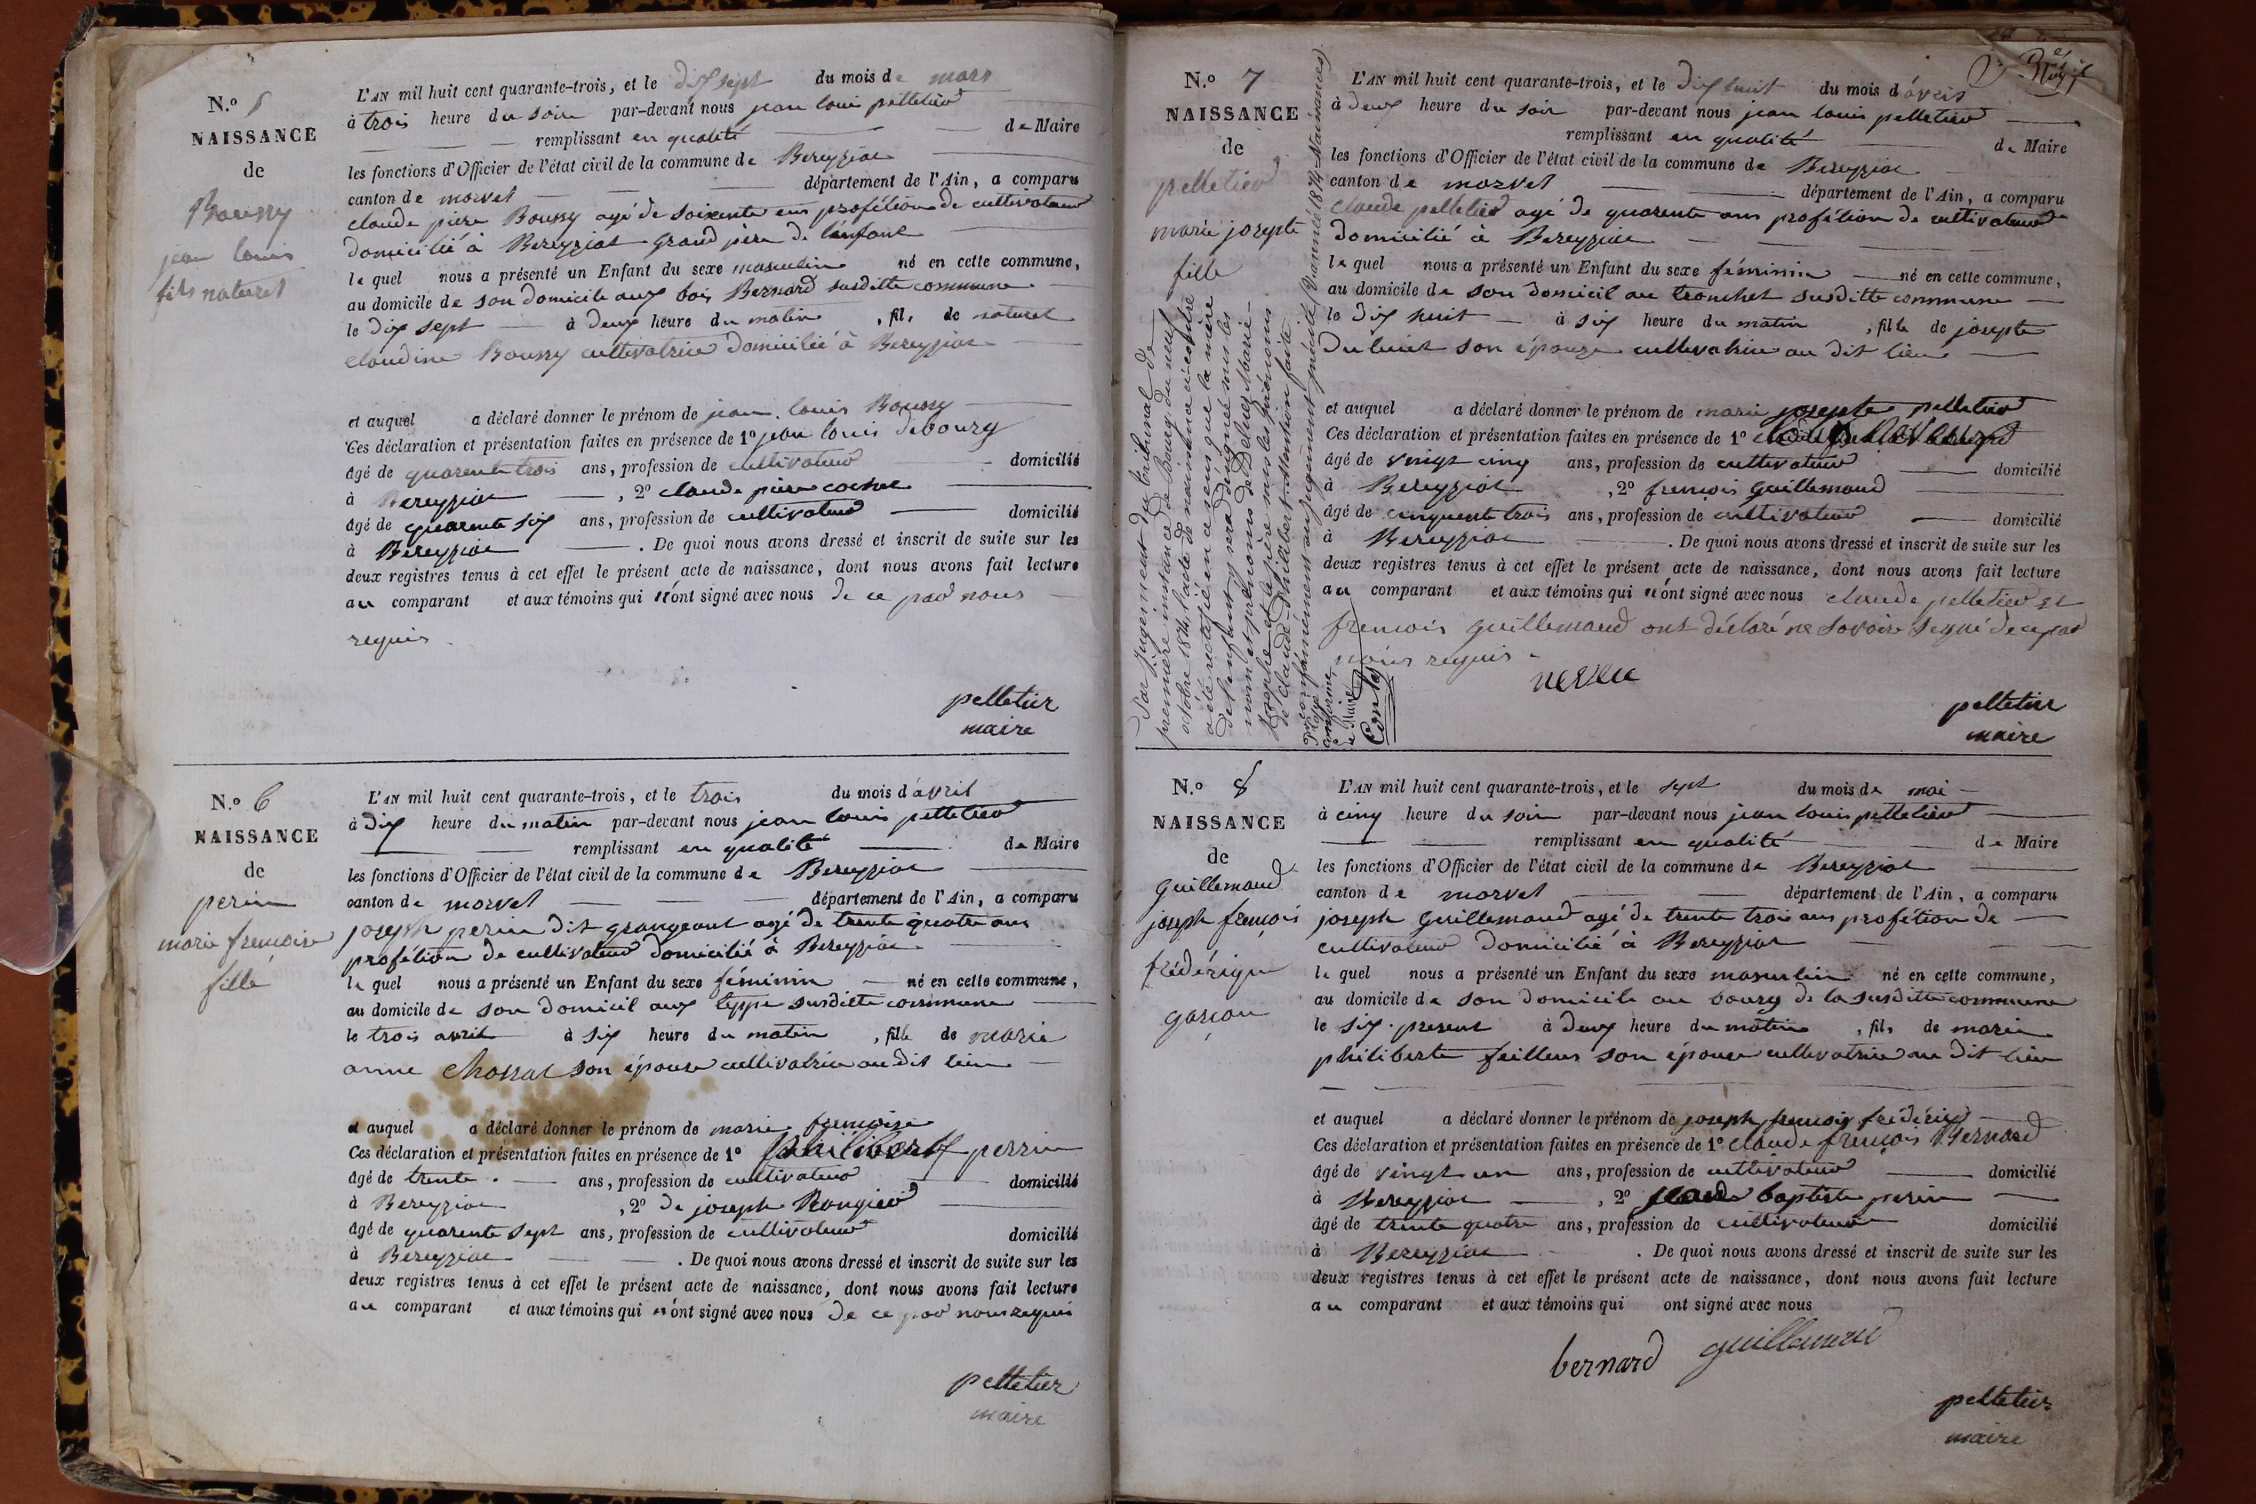 N.o 5
NAISSANCE
de
Boussy
jean louis
fils naturel
L'AN mil huit cent quarante-trois, et le dix sept du mois de mars
à trois heure du soir par-devant nous jean louis pelletier
remplissant en qualité de Maire
les fonctions d'Officier de l'état civil de la commune de Bereyziat
canton de morvel département de l'Ain, a comparu
claude piere Boussy agé de soixente ans profétion de cultivateur
domicilié à Bereyziat grand père de l'enfant
le quel nous a présenté un Enfant du sexe masculin né en cette commune,
au domicile de son domicile aux bois Bernard susditte commune
le dix sept à deux heure du matin, fils de naturel
claudine Boussy cultivatrice domicilié à Bereyziat
et auquel a déclaré donner le prénom de jean louis Boussy
Ces déclaration et présentation faites en présence de 1o jean louis debourg
âgé de quarente trois ans, profession de cultivateur domicilié
à Bereyziat, 2o claude piere
âgé de quarente six ans, profession de cultivateur domicilié
à Bereyziat. De quoi nous avons dressé et inscrit de suite sur les
deux registres tenus à cet effet le présent acte de naissance, dont nous avons fait lecture
au comparant et aux témoins qui n'ont signé avec nous de ce par nous
requis
pelletier
maire
N.o 6
NAISSANCE
de
perin
marie frencoise
fille
L'AN mil huit cent quarante-trois, et le trois du mois d'avril
à dix heure du matin par-devant nous jean louis pelletier
remplissant en qualité de Maire
les fonctions d'Officier de l'état civil de la commune de Bereyziat
canton de morvel département de l'Ain, a comparu
joseph perin dit grangeant agé de trente quatre ans
profétion de cultivateur domicilié à Bereyziat
le quel nous a présenté un Enfant du sexe féminin né en cette commune,
au domicile de son domicil aux teppe susditte commune
le trois avril à six heure du matin, fille de marie
anne Chossat son épouse cultivatrice au dit lieu
et auquel a déclaré donner le prénom de marie frencoise
Ces déclaration et présentation faites en présence de 1o philibert perrin
âgé de trente ans, profession de cultivateur domicilié
à Bereyziat, 2o de joseph Rongier
âgé de quarente sept ans, profession de cultivateur domicilié
à Bereyziat. De quoi nous avons dressé et inscrit de suite sur les
deux registres tenus à cet effet le présent acte de naissance, dont nous avons fait lecture
au comparant et aux témoins qui n'ont signé avec nous de ce par nous requis
pelletier
maire
N.o 7
NAISSANCE
de
pelletier
marie josepte
fille
Par jugement du tribunal de
première instance de Bourg du neuf
octobre 1874, l'acte de naissance ci contre
a été rectifié en ce sens que la mère
de l'enfant y sera désignée sous les
noms et prénoms de Deluy Marie
Josephe et le père sous les prénoms
de Claude Philibert. Mention faite
conformément au jugement précité (Année 1874 Naissances)
Le Maire
L'AN mil huit cent quarante-trois, et le dix huit du mois d'avril
à deux heure du soir par-devant nous jean louis pelletier
remplissant en qualité de Maire
les fonctions d'Officier de l'état civil de la commune de Bereyziat
canton de morvel département de l'Ain, a comparu
claude pelletier agé de quarente ans profétion de cultivateur
domicilié à Bereyziat
le quel nous a présenté un Enfant du sexe féminin né en cette commune,
au domicile de son domicil au tronchet susditte commune
le dix huit à six heure du matin, fille de josepte
son épouze cultivatrice au dit lieu
et auquel a déclaré donner le prénom de marie josepte pelletier
Ces déclaration et présentation faites en présence de 1o
âgé de vingt cinq ans, profession de cultivateur domicilié
à Bereyziat, 2o frençois guillemaud
âgé de cinquent trois ans, profession de cultivateur domicilié
à Bereyziat. De quoi nous avons dressé et inscrit de suite sur les
deux registres tenus à cet effet le présent acte de naissance, dont nous avons fait lecture
au comparant et aux témoins qui n'ont signé avec nous claude pelletier et
frencois guillemaud ont déclaré ne savoir signé de ce par
nous requis
pelletier
maire
N.o 8
NAISSANCE
de
guillemaud
joseph frençois
frédérique
garcon
L'AN mil huit cent quarante-trois, et le sept du mois de mai
à cinq heure du soir par-devant nous jean louis pelletier
remplissant en qualité de Maire
les fonctions d'Officier de l'état civil de la commune de Bereyziat
canton de morvel département de l'Ain, a comparu
joseph guillemaud agé de trente trois ans profétion de
cultivateur domicilié à Bereyziat
le quel nous a présenté un Enfant du sexe masculin né en cette commune,
au domicile de son domicile au bourg de la susditte commune
le six present à deux heure du matin, fils de marie
philiberte feillens son épouse cultivatrice au dit lieu
et auquel a déclaré donner le prénom de joseph frençois frédéric
Ces déclaration et présentation faites en présence de 1o claude françois Bernard
âgé de vingt un ans, profession de cultivateur domicilié
à Bereyziat, 2o baptiste perin
âgé de trente quatre ans, profession de cultivateur domicilié
à Bereyziat. De quoi nous avons dressé et inscrit de suite sur les
deux registres tenus à cet effet le présent acte de naissance, dont nous avons fait lecture
au comparant et aux témoins qui ont signé avec nous
bernard guillemaud
pelletier
maire